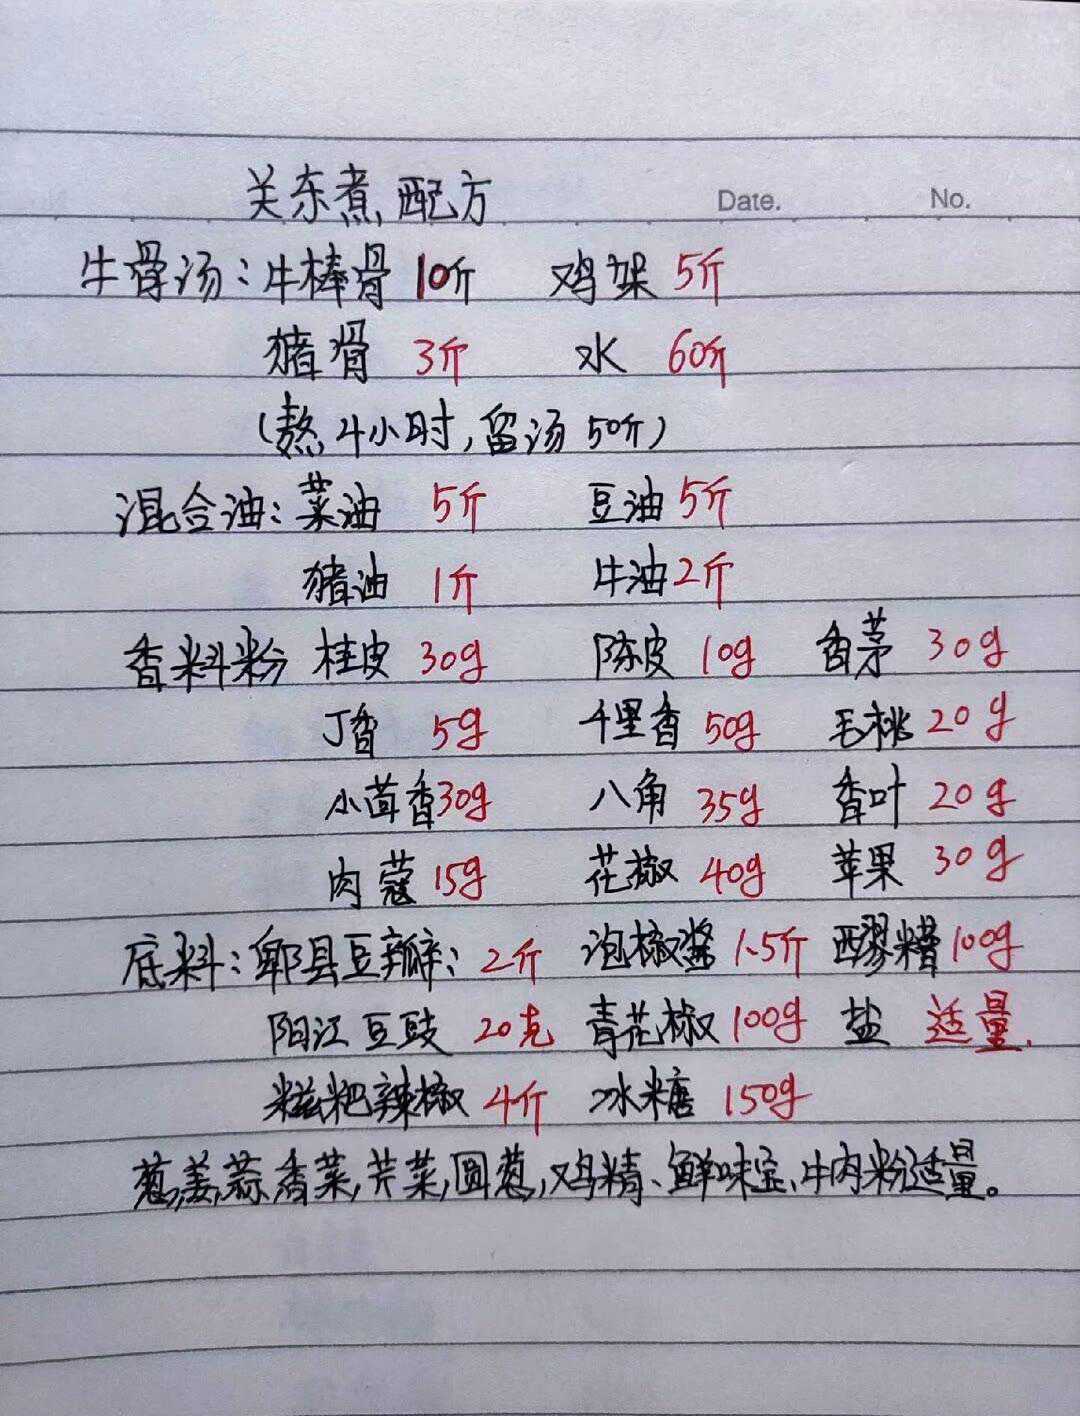 关东煮配方
Date. No.
牛骨汤：牛棒骨 10斤 鸡架 5斤
猪骨 3斤 水 60斤
（熬4小时，留汤50斤）
混合油：菜油 5斤 豆油 5斤
猪油 1斤 牛油 2斤
香料粉 桂皮 30g 陈皮 10g 香茅 30g
丁香 5g 千里香 50g 毛桃 20g
小茴香 30g 八角 35g 香叶 20g
肉蔻 15g 花椒 40g 苹果 30g
底料：郫县豆瓣：2斤 泡椒酱 1.5斤 醪糟 100g
阳江豆豉 20克 青花椒 100g 盐 适量.
糍粑辣椒 4斤 冰糖 150g
葱,姜,蒜,香菜,芹菜,圆葱,鸡精、鲜味宝、牛肉粉适量。